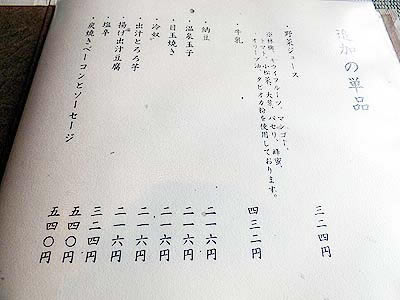 追加の単品
・野菜ジュース 三二四円
※林檎、キウイフルーツ、マンゴー、
トマト、小松菜、大葉、パセリ、蜂蜜、
オリーブ油、タピオカ粉を使用しております。
・牛乳 四三二円
・納豆 二一六円
・温泉玉子 二一六円
・目玉焼き 二一六円
・冷奴 二一六円
・出汁とろろ芋 二一六円
・揚げ出汁豆腐 三二四円
・塩辛 五四〇円
・炭焼きベーコンとソーセージ 五四〇円